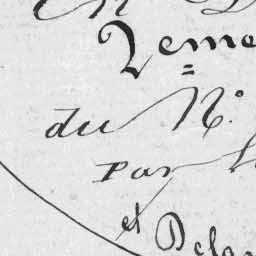 2eme
du N°.
par
et Dela